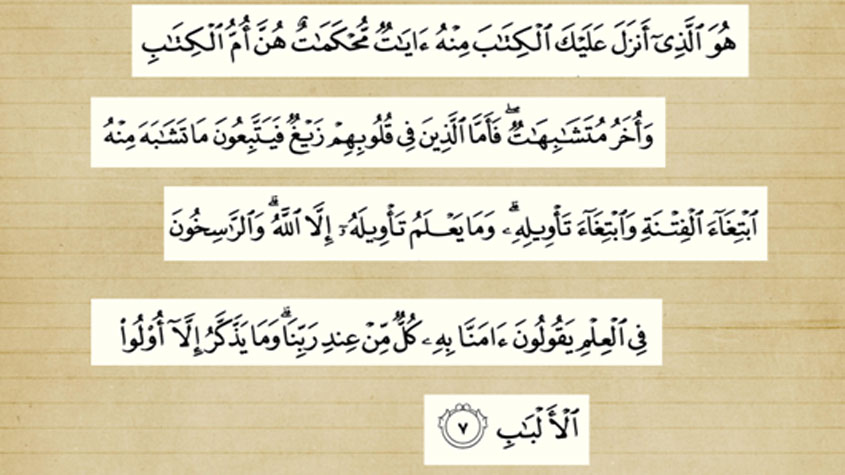 هُوَ ٱلَّذِىٓ أَنزَلَ عَلَيْكَ ٱلْكِتَٰبَ مِنْهُ ءَايَٰتٌ مُّحْكَمَٰتٌ هُنَّ أُمُّ ٱلْكِتَٰبِ
وَأُخَرُ مُتَشَٰبِهَٰتٌ ۖ فَأَمَّا ٱلَّذِينَ فِى قُلُوبِهِمْ زَيْغٌ فَيَتَّبِعُونَ مَا تَشَٰبَهَ مِنْهُ
ٱبْتِغَآءَ ٱلْفِتْنَةِ وَٱبْتِغَآءَ تَأْوِيلِهِۦ ۗ وَمَا يَعْلَمُ تَأْوِيلَهُۥٓ إِلَّا ٱللَّهُ ۗ وَٱلرَّٰسِخُونَ
فِى ٱلْعِلْمِ يَقُولُونَ ءَامَنَّا بِهِۦ كُلٌّ مِّنْ عِندِ رَبِّنَا ۗ وَمَا يَذَّكَّرُ إِلَّآ أُو۟لُوا۟
ٱلْأَلْبَٰبِ ٧